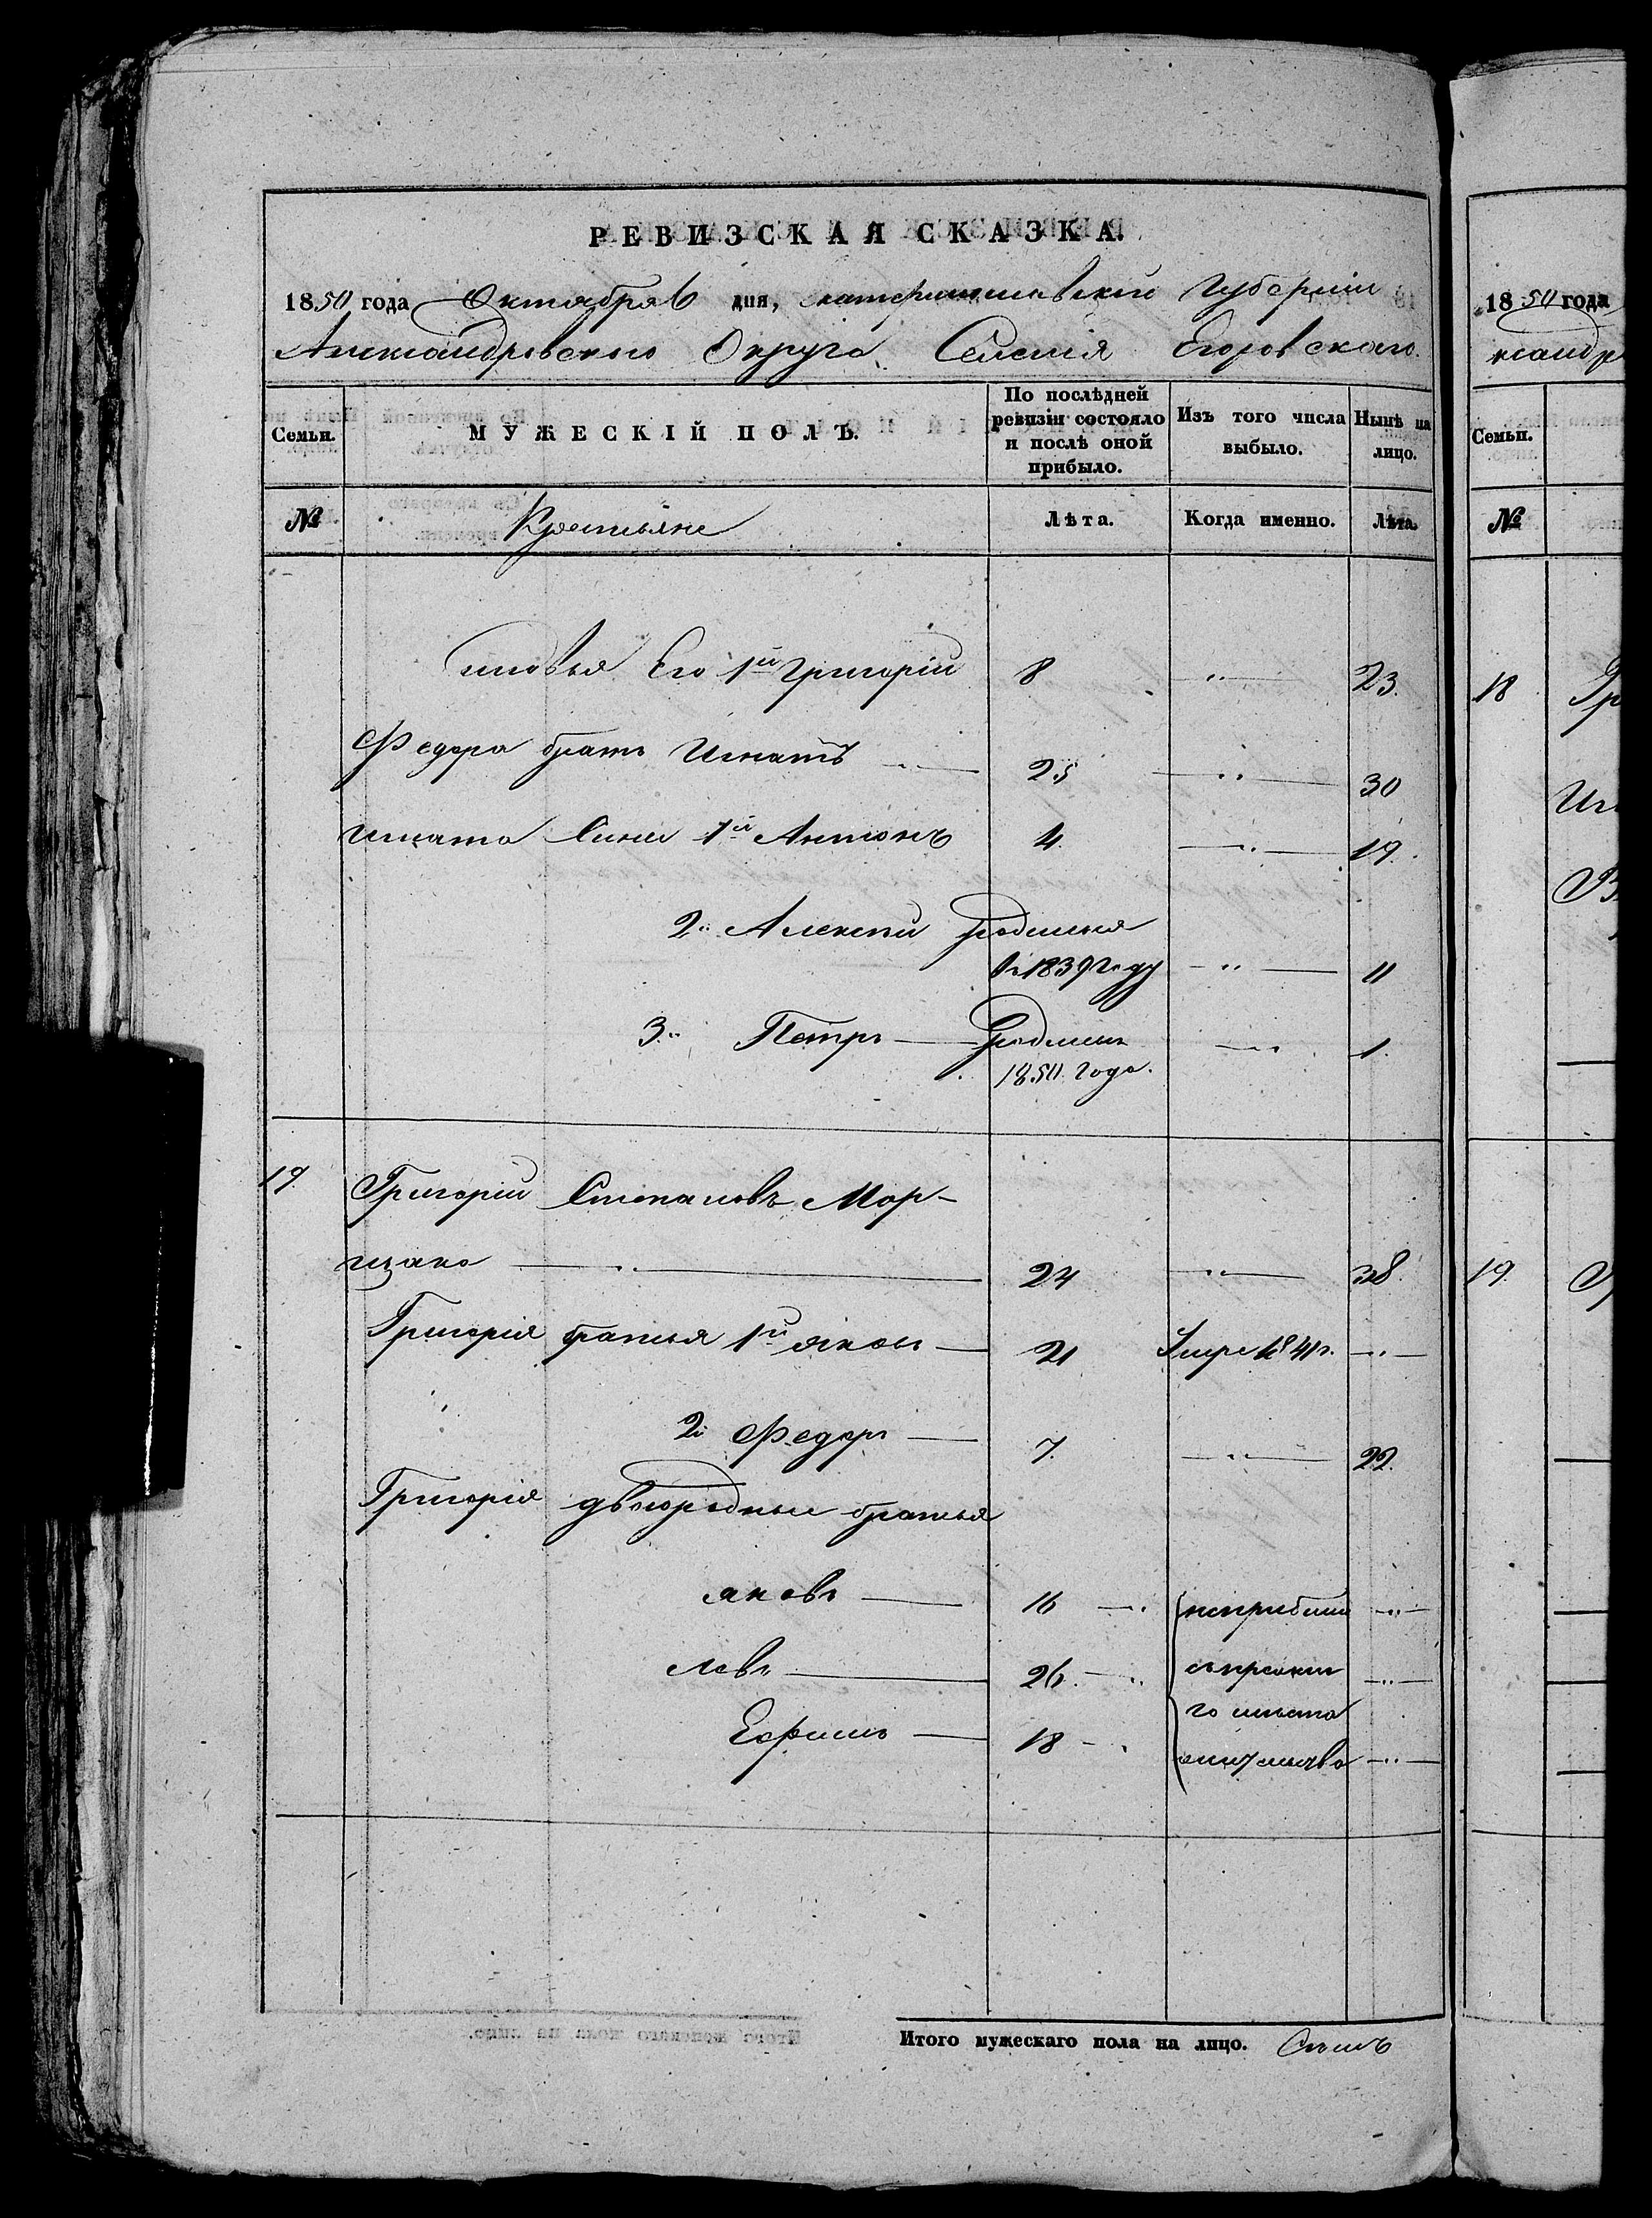 РЕВИЗСКАЯ СКАЗКА.
1850 года Октября 6 дня, Екатеринославской Губерніи
Александровского Округа Селенія Егоровскаго.
Семьи.
МУЖЕСКІЙ ПОЛЪ.
По послѣдней ревизіи состояло и послѣ оной прибыло.
Изъ того числа выбыло.
Нынѣ на лицо.
№ Крестьяне Лѣта. Когда именно. Лѣта.
Сыновья Его 1й Григорій 8 " 23.
Федора братъ Игнатъ 25 " 30
Игната Сыны 1й Антонъ 4. " 19.
2й Алексѣй родился
въ 1839 году " 11
3й Петръ родился " 1.
1850 года.
19. Григорій Степановъ Мор-
щако " 24 " 38.
Григорія братья 1й Яковъ 21 Умре 1841г. "
2й Федоръ 7. " 22.
Григорія двоюродные братья
Яковъ 16 " неприбыли "
Левъ 26. " съ прежня "
го мѣста
Ефимъ 18 " жительства "
Итого мужескаго пола на лицо. Семь
1850 года
ксандр
Семьи.
№
18 Гр
Иг
19.